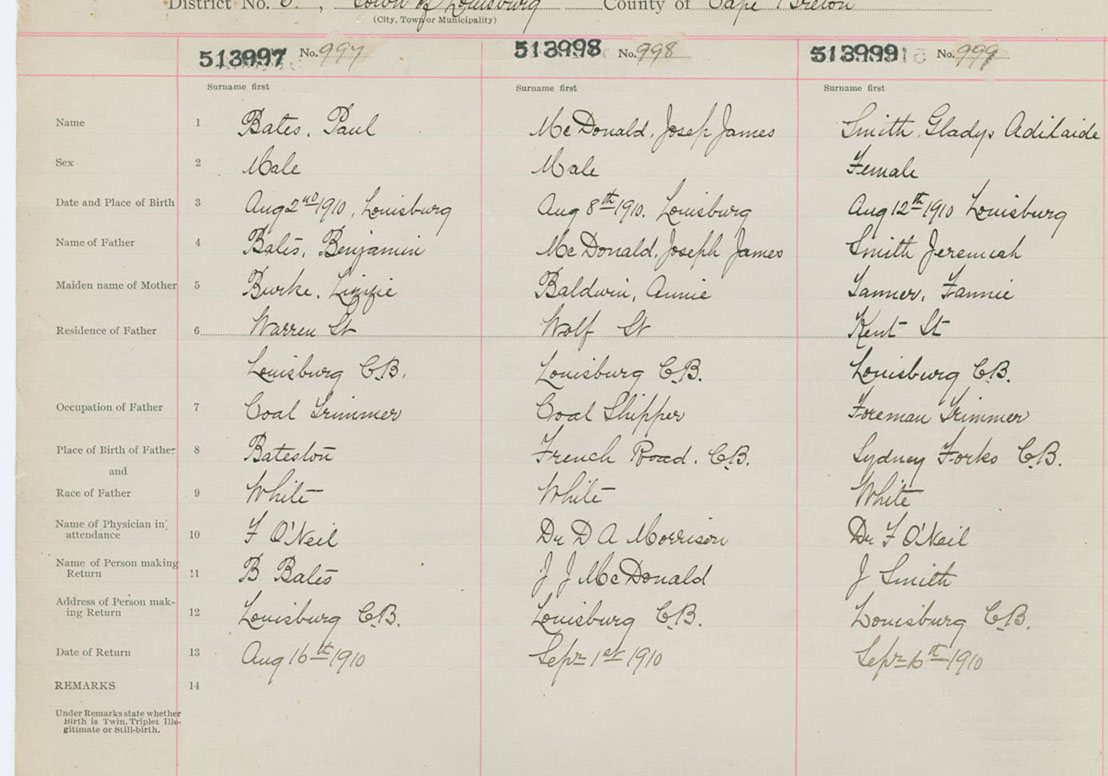 District No. , Town of Louisburg County of Cape Breton
(City, Town or Municipality)
513997 No. 997 513998 No. 998 513999 No. 999
Surname first Surname first Surname first
Name 1 Bates, Paul McDonald, Josep James Smith, Gladys Adilaide
Sex 2 Male Male Female
Date and Place of Birth 3 Aug 2nd 1910, Louisburg Aug 8th 1910. Louisburg Aug 12th 1910 Louisburg
Name of Father 4 Bates, Benjamin McDonald, Joseph James Smith Jeremiah
Maiden name of Mother 5 Burke, Lizzie Baldwin, Annie Tanner, Fannie
Residence of Father 6 Warren St Wolf St Kent St
Louisburg C.B. Louisburg C.B. Louisburg C.B.
Occupation of Father 7 Coal Trimmer Coal Shipper Foreman Trimmer
Place of Birth of Father 8 Bateston French Road. C.B. Sydney Forks C.B.
and
Race of Father 9 White White White
Name of Physician in
attendance 10 F O'Neil Dr D A Morrison Dr F O'Neil
Name of Person making
Return 11 B Bates J J McDonald J Smith
Address of Person mak-
ing Return 12 Louisburg C.B. Louisburg C.B. Louisburg C.B.
Date of Return 13 Aug 16th 1910 Sepr 1st 1910 Sepr 6th 1910
REMARKS 14
Under Remarks state whether
Birth is Twin, Triplet Ille-
gitimate or Still-birth.